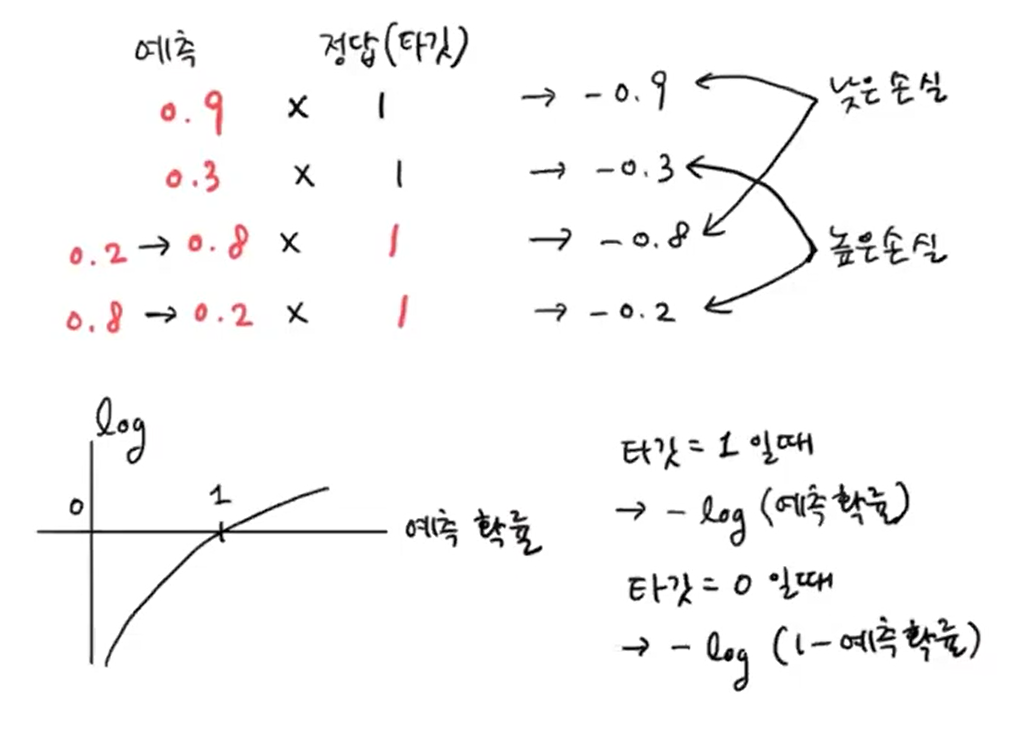 예측 정답(타깃)
0.9 × 1 → -0.9 낮은손실
0.3 × 1 → -0.3
0.2 → 0.8 × 1 → -0.8 높은손실
0.8 → 0.2 × 1 → -0.2
log
0 1 예측 확률
타깃 = 1 일때
→ - log (예측 확률)
타깃 = 0 일때
→ - log (1-예측 확률)